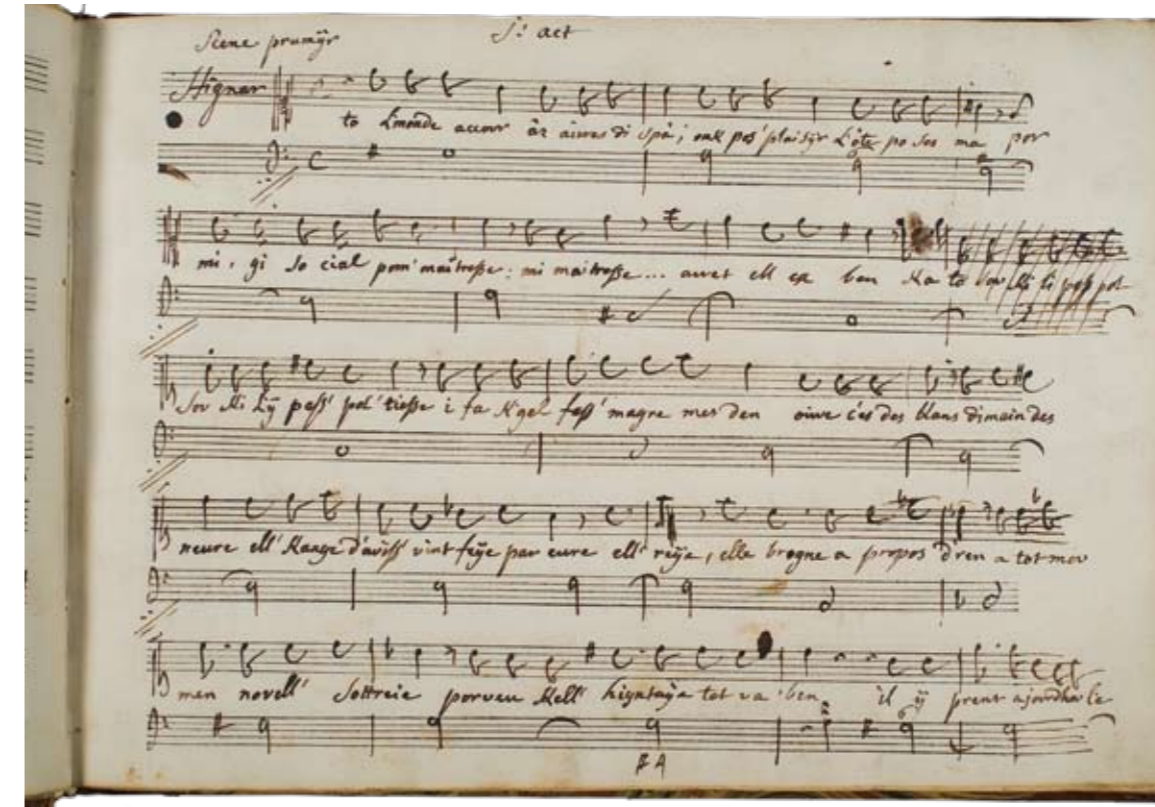 Scene prumÿr J: act
Hignar
to Lmonde accour âz aiwes di Spâ; onk po s' plaisÿr L'ôte po ses ma por
mi, gi so cial pom' maitresse: mi maitresse... awet ell ea ben Ka to sov Ki li pass pol
sov Ki Lÿ pass' pol' tiesse i fa K'gel fass' magre mes den oiwe c'es des blans dimain des
neure ell' Kange d'aviss' vint feÿe par eure ell' reÿe, elle brogne a propos d'ren a tot mou
men novell' sottreie porveu Kell' higntaÿe tot va ben il ÿ prent ajourdhu le